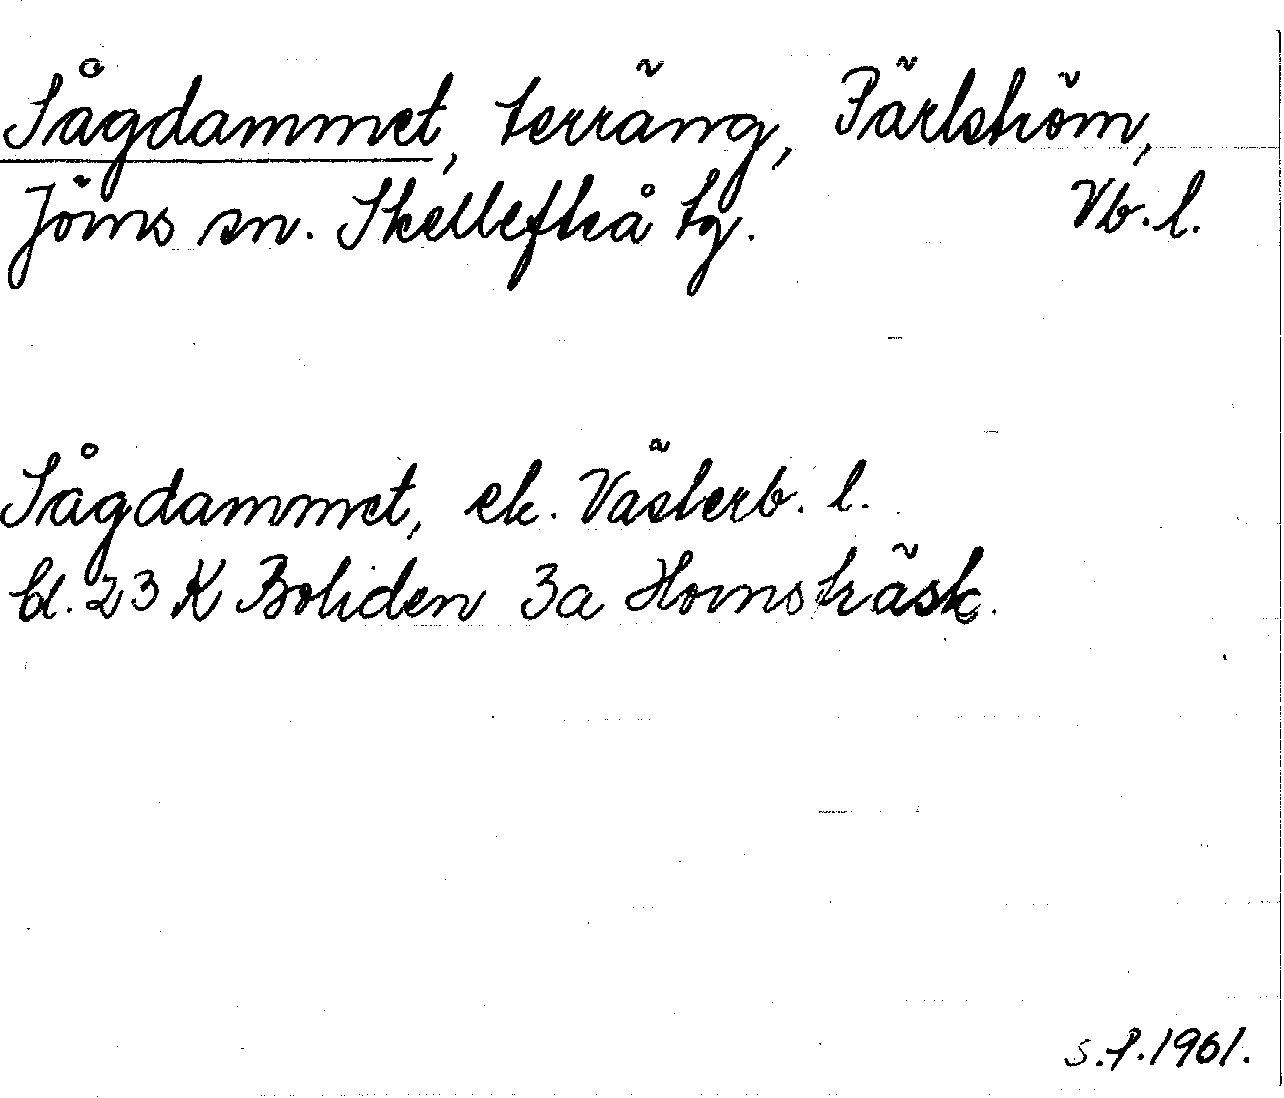 Sågdammet, terräng, Pärlström,
Jörns sn. Skellefteå tg. Vb. l.
Sågdammet, ek. Västerb. l.
bl. 23 K Boliden 3a Hornsträsk.
s.f. 1961.